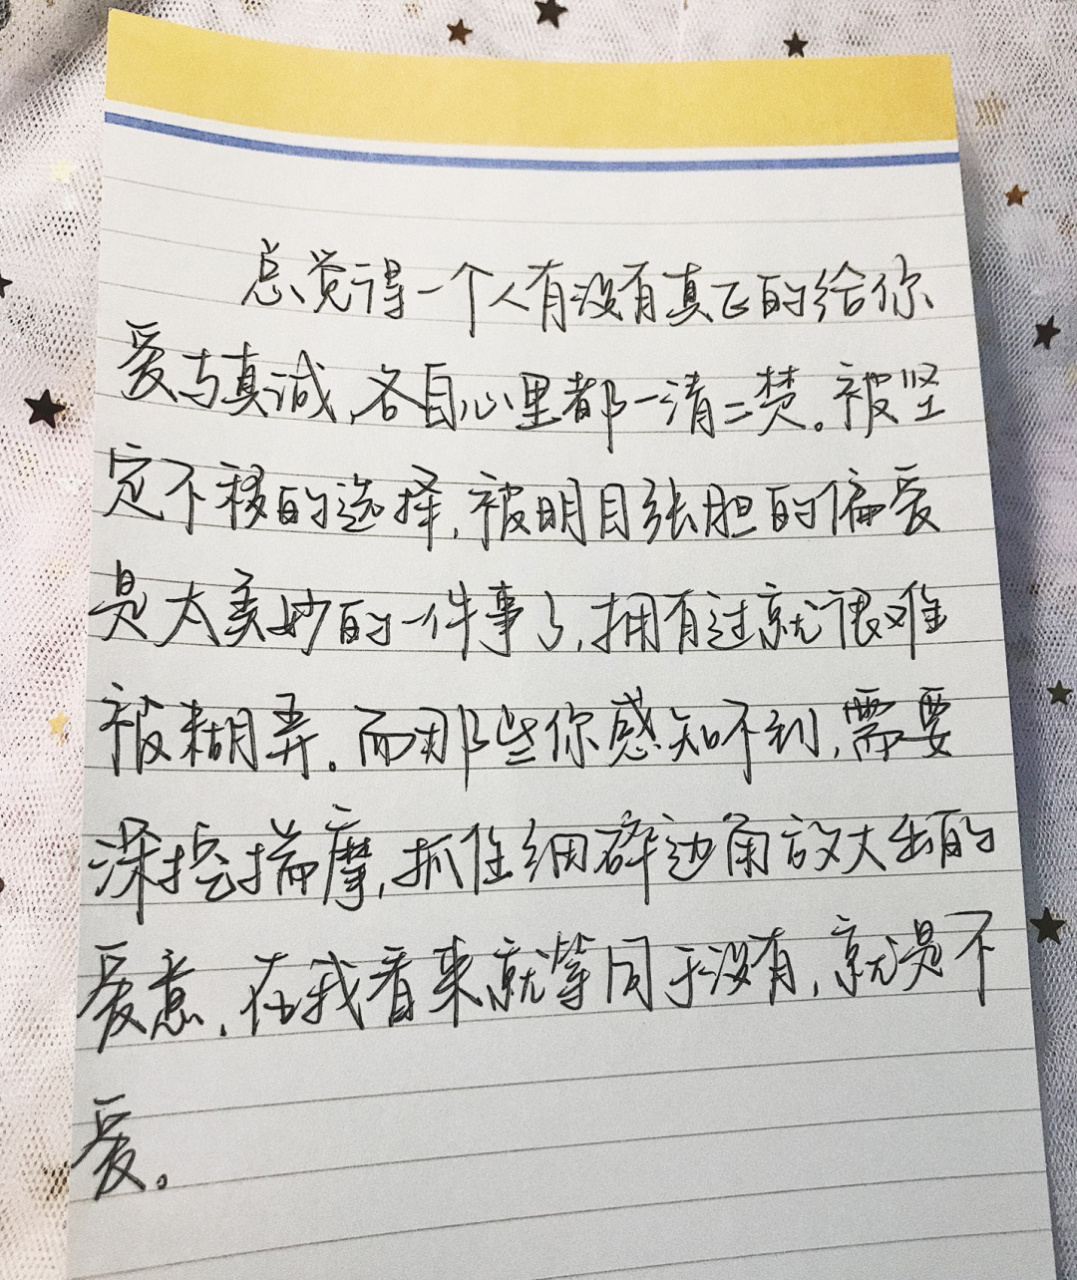 总觉得一个人有没有真正的给你
爱与真诚,各自心里都一清二楚。被坚
定不移的选择,被明目张胆的偏爱
是太美妙的一件事了,拥有过就很难
被糊弄。而那些你感知不到,需要
深挖揣摩,抓住细碎边角放大出的
爱意,在我看来就等同于没有,就是不
爱。